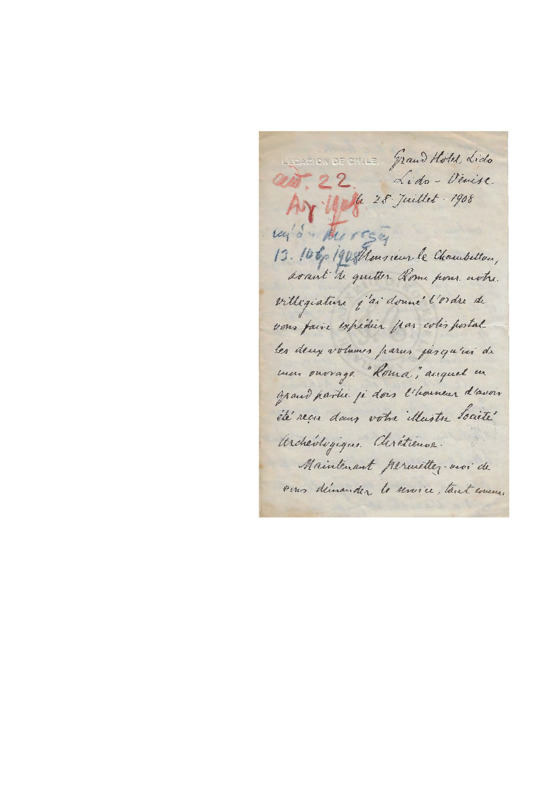 LEGACION DE CHILE.
Grand Hotel Lido
Lido - Venise.
22.
le 28 Juillet - 1908
1908
13. 1908
Monsieur le Chambellan,
avant de quitter Rome pour notre
villégiature j'ai donné l'ordre de
vous faire expédier par colis postal
les deux volumes parus jusqu'ici de
mon ouvrage "Roma", auquel en
grand partie je dois l'honneur d'avoir
été reçu dans votre illustre Société
Archéologique Chrétienne.
Maintenant permettez-moi de
vous démander le service, tant comme